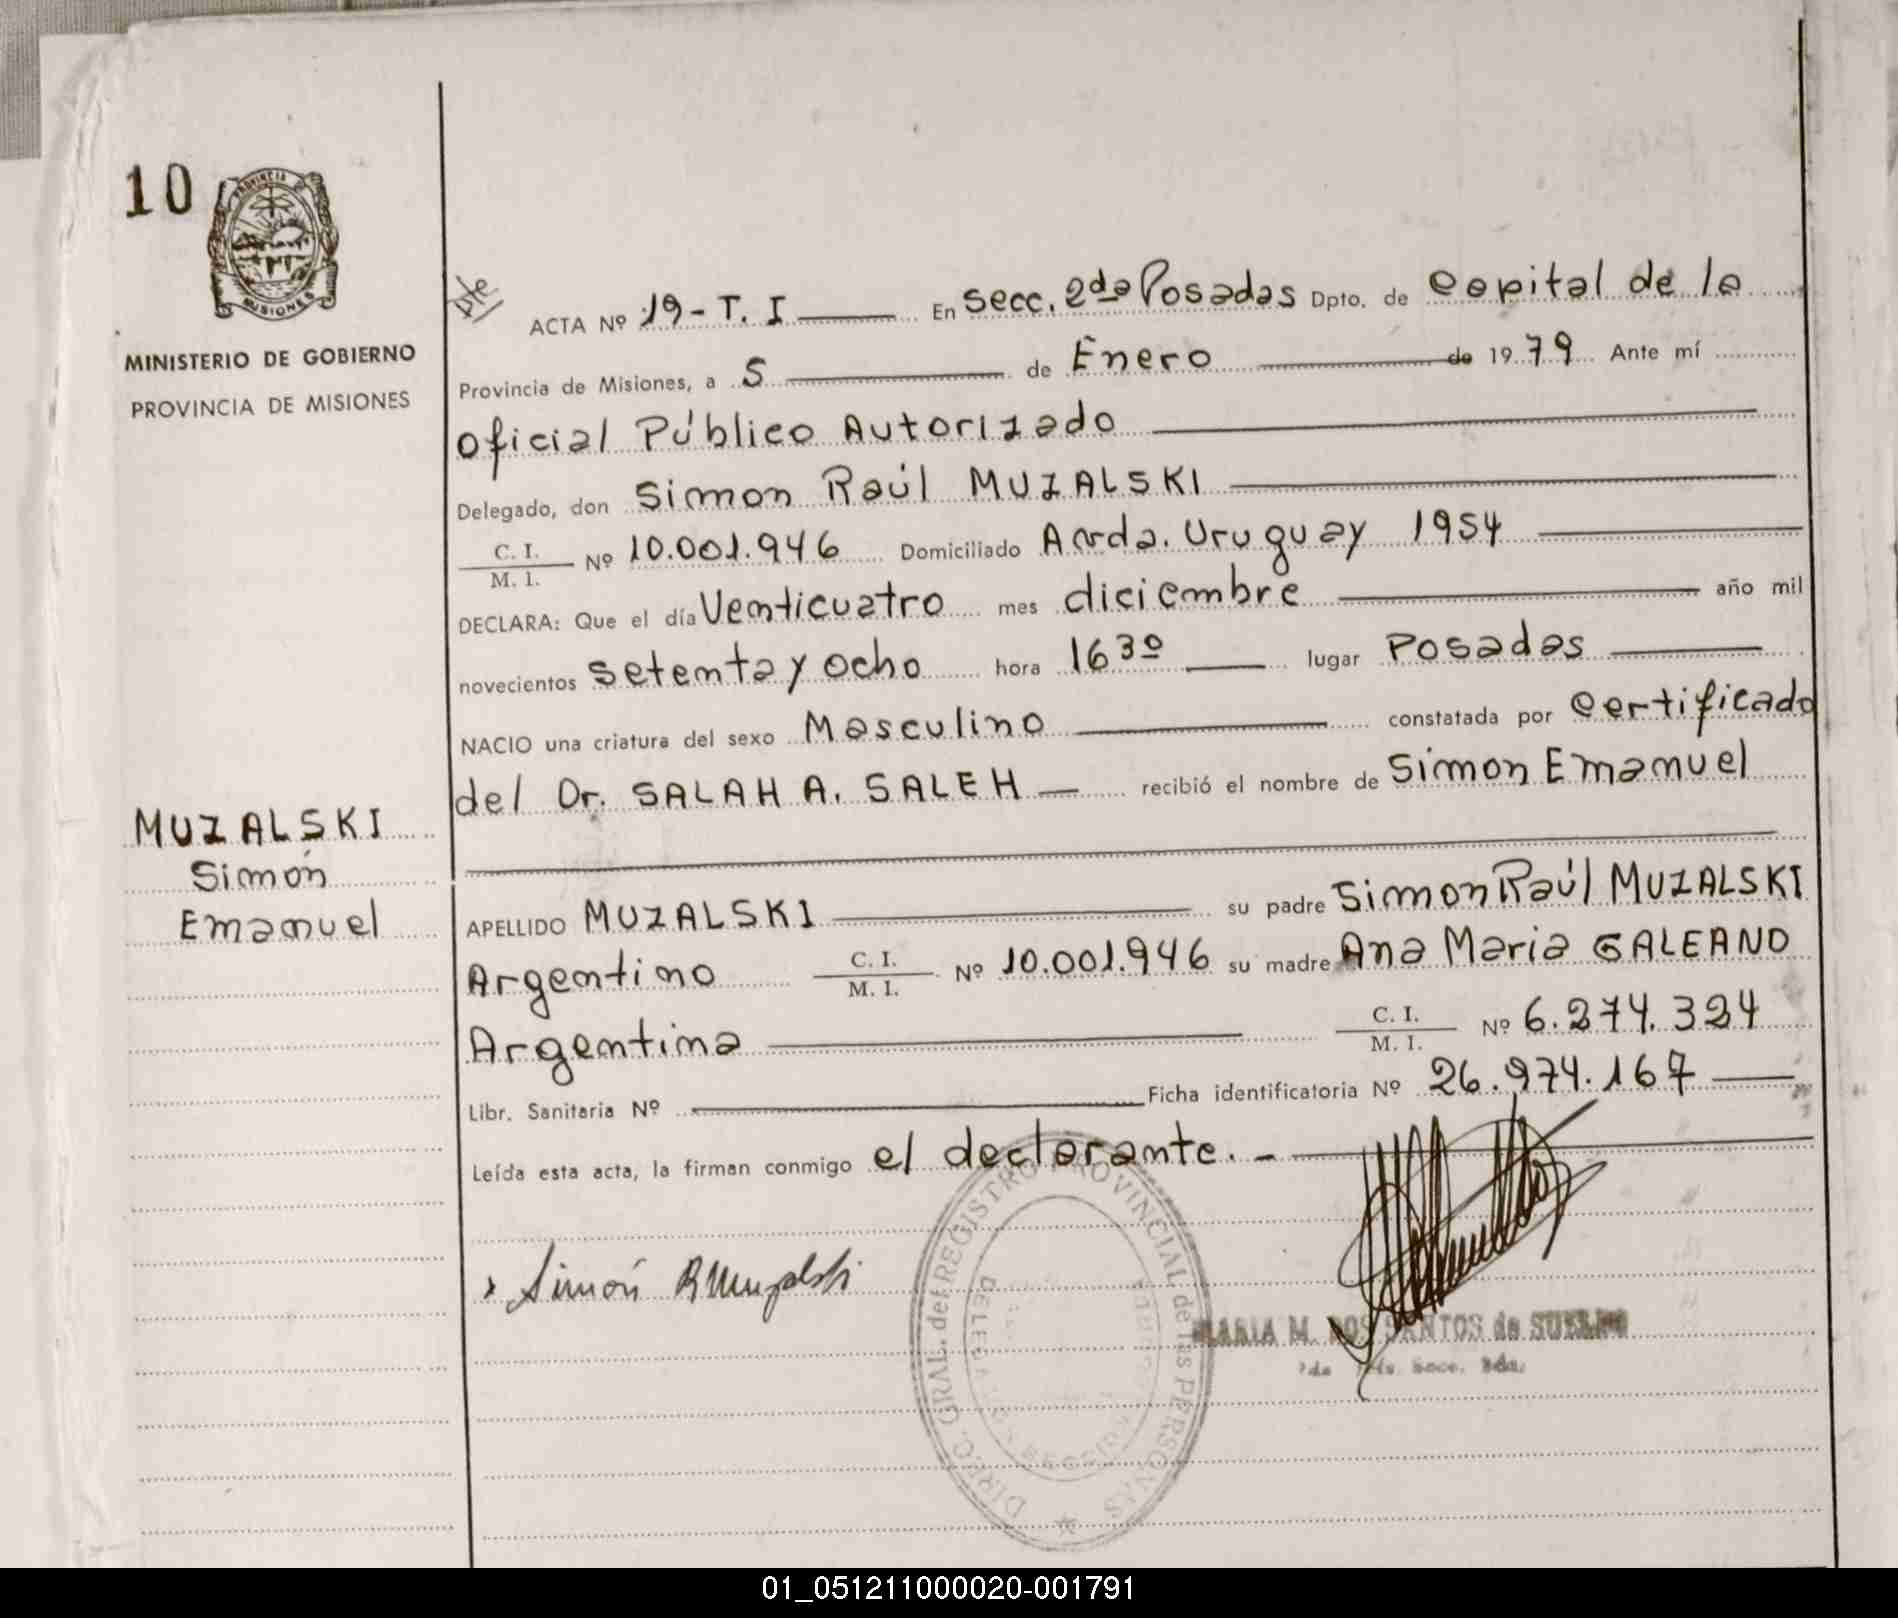 10
PROVINCIA DE
MISIONES
MINISTERIO DE GOBIERNO
PROVINCIA DE MISIONES
MUZALSKI
Simón
Emanuel
ACTA Nº 19-T. I En Secc. 2da Posadas Dpto. de Capital de la
Provincia de Misiones, a 5 de Enero de 1979 Ante mí
Oficial Público Autorizado
Delegado, don Simon Raúl MUZALSKI
C. I.
M. I. Nº 10.001.946 Domiciliado Avda. Uruguay 1954
DECLARA: Que el día Venticuatro mes diciembre año mil
novecientos setenta y ocho hora 16 30 lugar Posadas
NACIO una criatura del sexo Masculino constatada por Certificado
del Dr. SALAH A. SALEH recibió el nombre de Simon Emanuel
APELLIDO MUZALSKI su padre Simon Raúl MUZALSKI
Argentino C. I.
M. I. Nº 10.001.946 su madre Ana Maria GALEANO
Argentina C. I.
M. I. Nº 6.274.324
Libr. Sanitaria Nº Ficha identificatoria Nº 26.974.167
Leída esta acta, la firman conmigo el declarante. -
Simón R Muzalski
DIREC. GRAL. del REGISTRO PROVINCIAL de las PERSONAS
MARIA M. DOS SANTOS de
Secc. 2da.
01_051211000020-001791